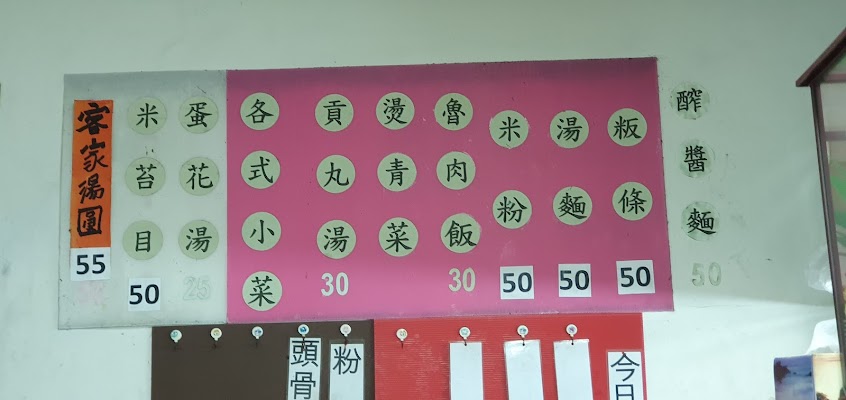 醡醬麵
50
粄條
50
湯麵
50
米粉
50
魯肉飯
30
燙青菜
貢丸湯
30
各式小菜
蛋花湯
25
米苔目
50
客家湯圓
55
今日
粉
頭骨